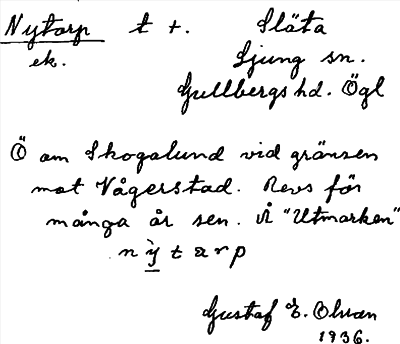 Nytorp t +. Släta
ek. Ljung sn.
Gullbergs hd. Ögl
Ö om Skogalund vid gränsen
mot Vågerstad. Revs för
många år sen. Å "Utmarken"
n ỳ t a r p
Gustaf E. Olsson
1936.